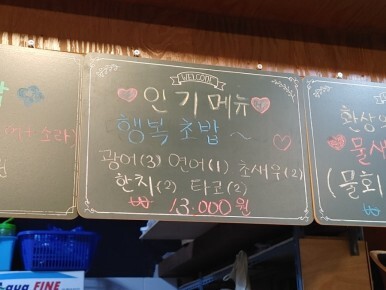 WELCOME
인기메뉴
행복초밥 ~
광어(3) 연어(1) 초새우(2)
한치(2) 타코(2)
₩ 13.000원
소라)
환상
물새
(물회
FINE